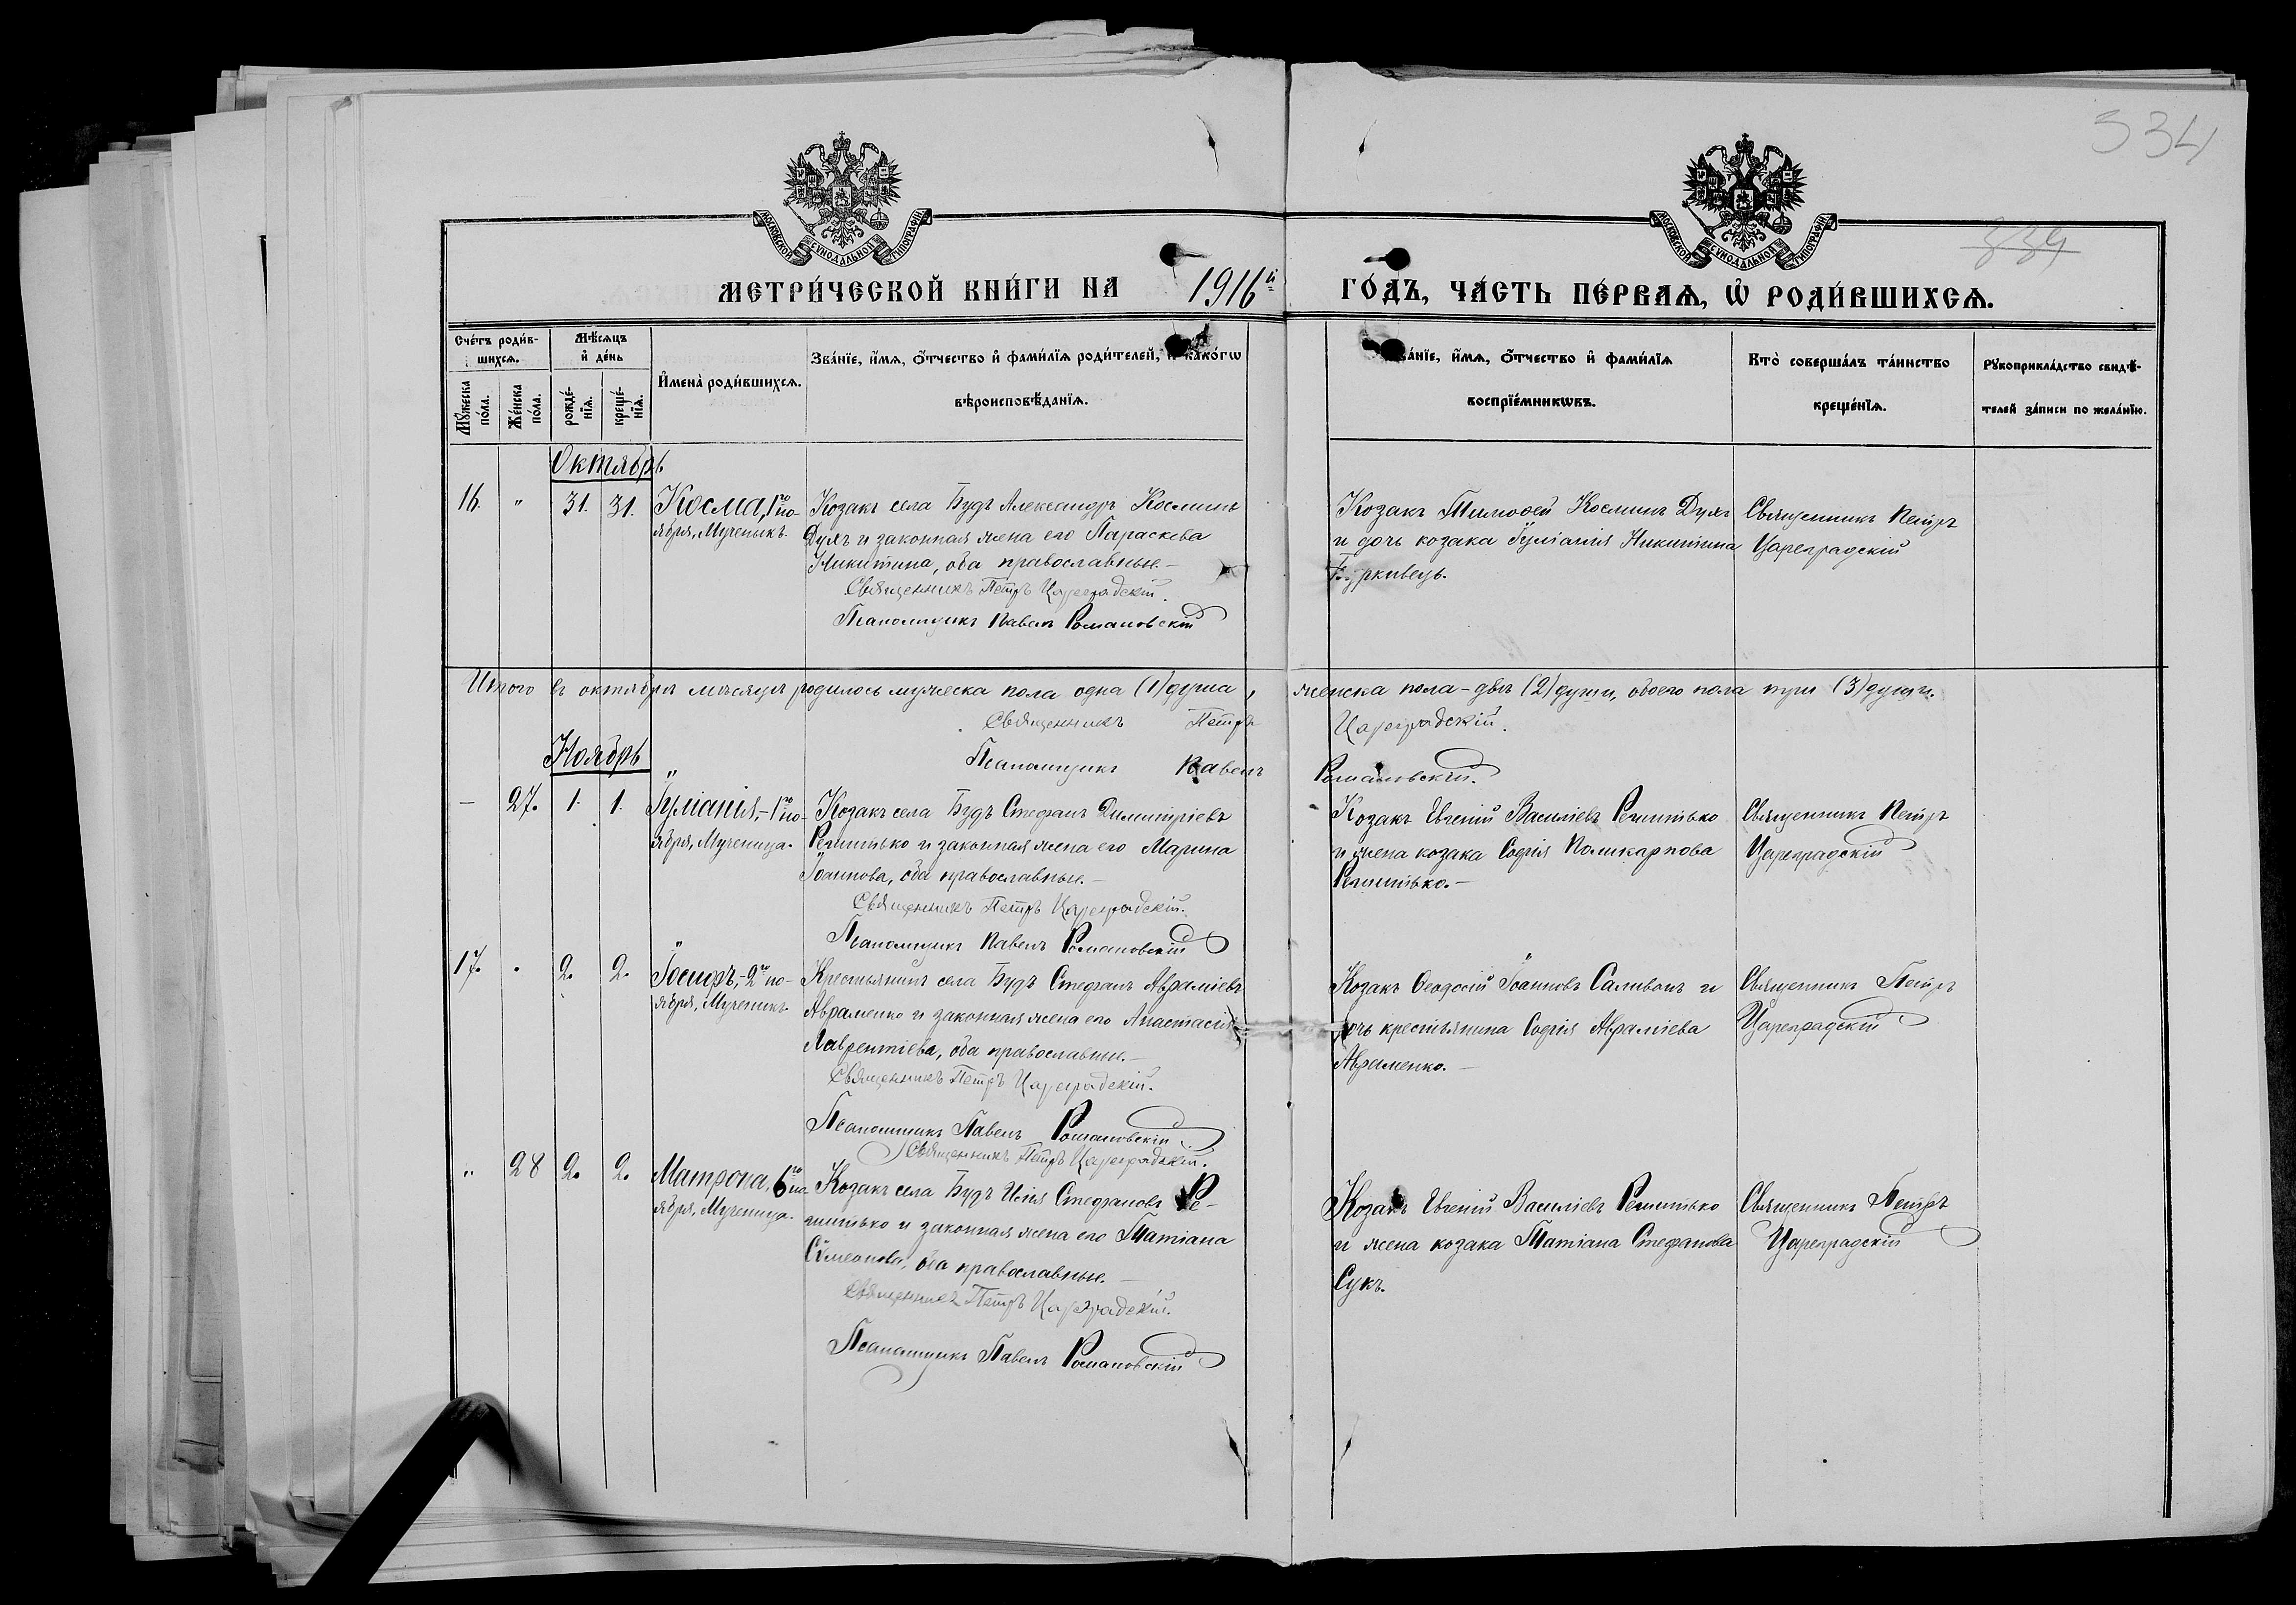 534
334
МОСКОВСКОЙ СѴНОДАЛЬНОЙ ТИПОГРАФІИ
МОСКОВСКОЙ СѴНОДАЛЬНОЙ ТИПОГРАФІИ
МЕТРИ́ЧЕСКОЙ КНИ́ГИ НА 1916й ГО́ДЪ, ЧА́СТЬ ПЕ́РВАѦ, Ѡ҆ РОДИ́ВШИХСѦ.
Сче́тъ роди́в-
шихсѧ.
Мꙋ́жеска по́ла.
Же́нска по́ла.
Мѣ́сѧцъ и҆ де́нь
рожде́-
нїѧ.
креще́-
нїѧ.
И҆мена̀ роди́вшихсѧ.
Зва́нїе, и҆́мѧ, ѻ҆́тчество и҆ фами́лїѧ роди́телей, и҆ како́гѡ
вѣроисповѣ́данїѧ.
Зва́нїе, и҆́мѧ, ѻ҆́тчество и҆ фами́лїѧ
воспрїе́мникѡвъ.
Кто̀ соверша́лъ та́инство
креще́нїѧ.
Рꙋкоприкла́дство свидѣ́-
телей за́писи по жела́нїю.
Октябрь
16. " 31. 31.
Косма, 1го но-
ября, Мученикъ.
Козакъ села Будъ Александръ Косминъ
Духъ и законная жена его Параскева
Никитина, оба православные.-
Священникъ Петръ Цареградскій.
Псаломщикъ Павелъ Романовскій
Козакъ Тимофей Косминъ Духъ
и дочь козака Іуліанія Никитина
Священникъ Петръ
Цареградскій
Итого въ октябрѣ мѣсяцѣ родилось мужеска пола одна (1) душа, женска пола - двѣ (2) души, обоего пола три (3) души.
Священникъ Петръ Цареградскій.
Псаломщикъ Павелъ Романовскій.
Ноябрь
— 27. 1. 1.
Іуліанія,- 1го но-
ября, Мученица.
Козакъ села Будъ Стефанъ Димитріевъ
Решитько и законная жена его Марина
Іоаннова, оба православные.-
Священникъ Петръ Цареградскій.
Псаломщикъ Павелъ Романовскій
Козакъ Евгеній Василіевъ Решитько
и жена козака Софія Поликарпова
Решитько.-
Священникъ Петръ
Цареградскій
17. . 2. 2.
Іосифъ,- 2го но-
ября, Мученикъ
Крестьянинъ села Будъ Стефанъ Авраміевъ
Авраменко и законная жена его Анастасія
Лаврентіева, оба православные.-
Священникъ Петръ Цареградскій.
Псаломщикъ Павелъ Романовскій.
Козакъ Феодосій Іоанновъ Саливонъ и
дочь крестьянина Софія Авраміева
Авраменко.-
Священникъ Петръ
Цареградскій
Священникъ Петръ Цареградскій.
" 28 2. 2.
Матрона, 6го но-
ября, Мученица.
Козакъ села Будъ Илія Стефановъ Ре-
шитько и законная жена его Татіана
Сѵмеонова, оба православные.-
Священникъ Петръ Цареградскій.
Псаломщикъ Павелъ Романовскій
Козакъ Евгеній Василіевъ Решитько
и жена козака Татіана Стефанова
Сукъ.
Священникъ Петръ
Цареградскій